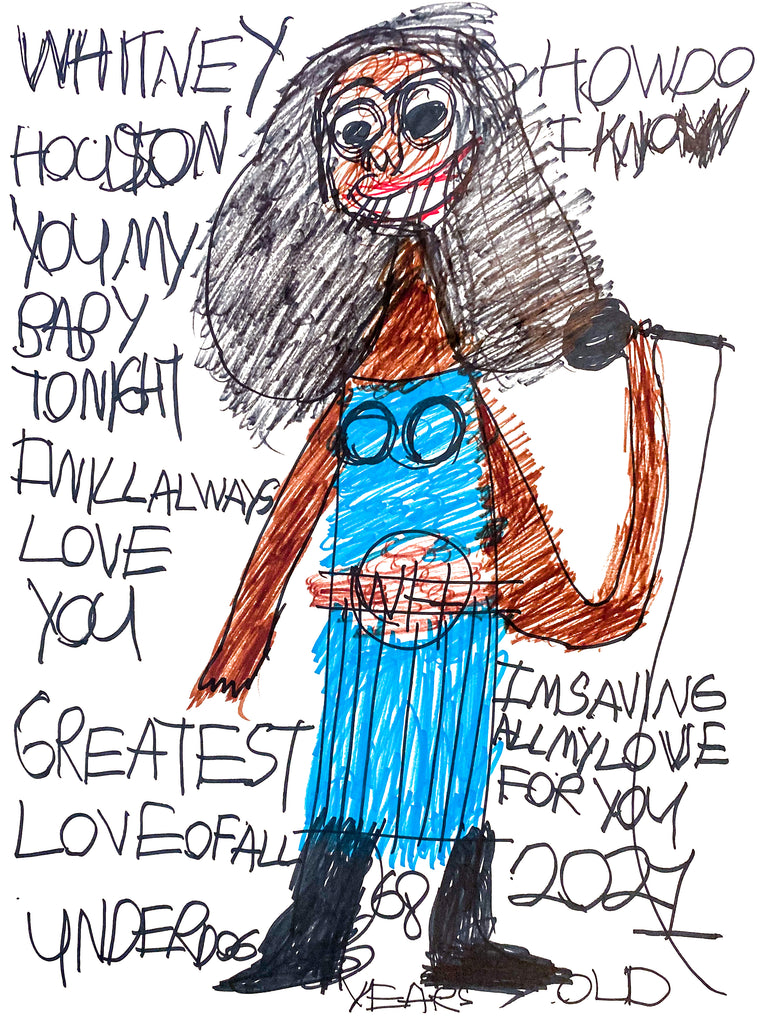 WHITNEY
HOUSTON
YOU MY
BABY
TONIGHT
I WILL ALWAYS
LOVE
YOU
GREATEST
LOVE OF ALL
UNDERDOG
HOW DO
I KNOW
WH
I'M SAVING
ALL MY LOVE
FOR YOU
2027
68
YEARS OLD